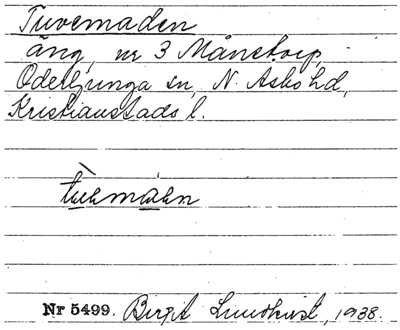 Tuvemaden
äng, nr 3 Månstorp,
Oderljunga sn, N. Asbo hd,
Kristianstads l.
Nr 5499. Birgit Lindkvist, 1938.